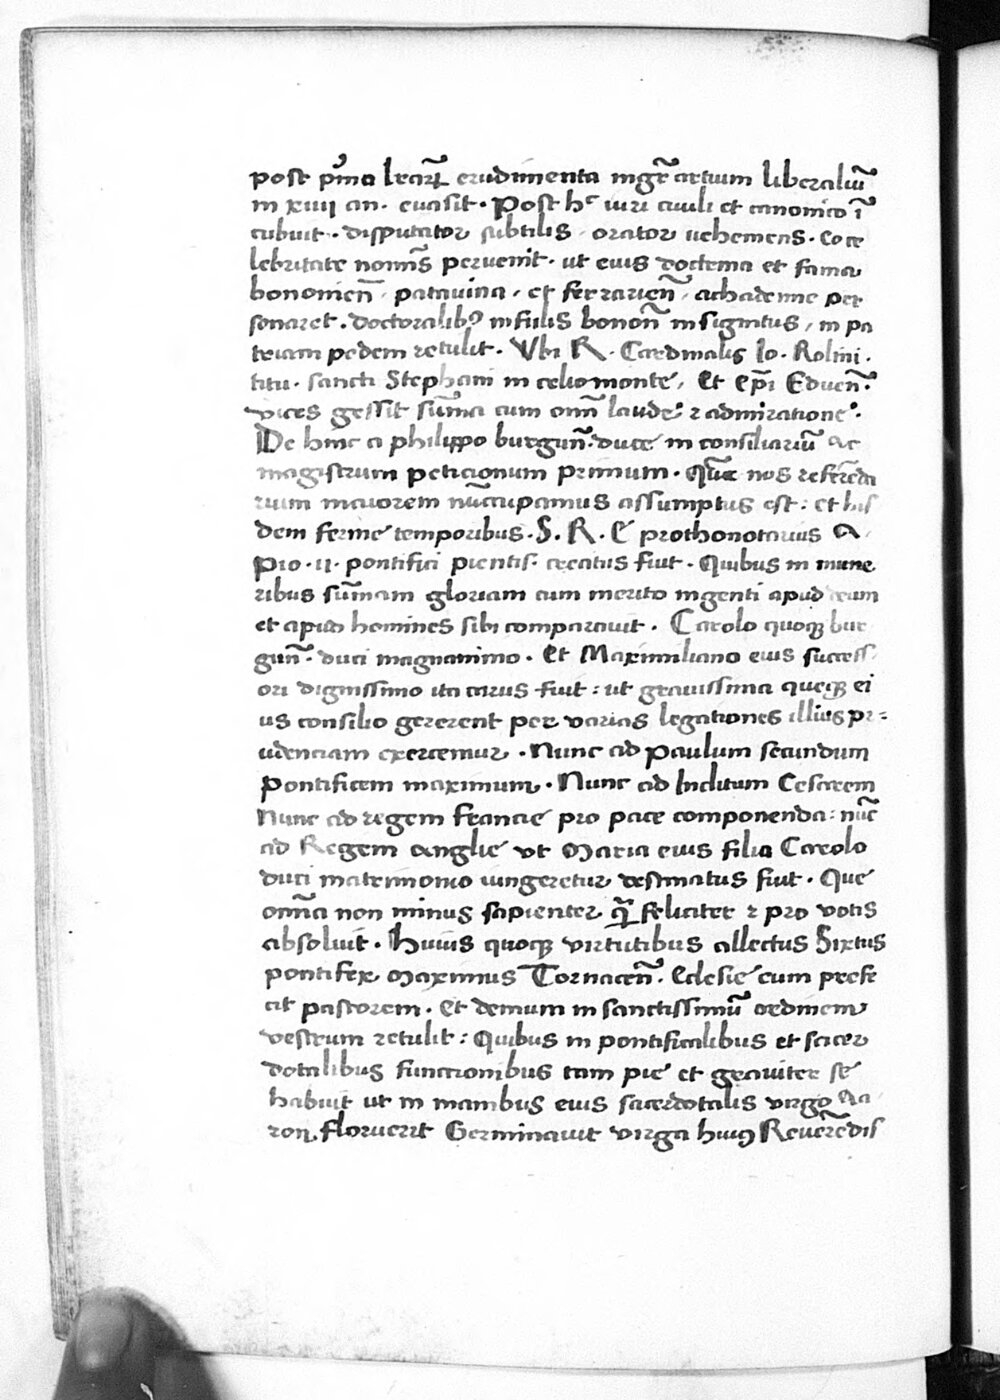 post p̃ma l̃rarũ erudimenta mgr̃ artium liberaliũ
in xiiij an. euasit. Post hc iuri ciuili et canonico ĩ
cubuit. disputator subtilis, orator uehemens. Eo ce
lebritate nom̃is peruenit. ut eius doctrina et fama
bononien̄, patauina, et ferrarien̄, achademie per
sonaret. doctoralibꝰ infulis bonon̄ insignitus, in pa
triam pedem retulit. Vbi R. Cardinalis Io. Rolini.
titu. sancti Stephani in celio monte, Et ep̄i Eduen̄.
uices gessit sum̃a cum om̄i laude ⁊ admiratione.
De hinc a philippo burgun̄. duce in consiliariũ ac
magistrum peticionum primum. Quẽ nos referẽda
rium maiorem nũcupamus assumptus est: et his
dem ferme temporibus. S. R. E prothonotarius A
Pio. ii. pontifici pientis. creatus fuit. Quibus in mune
ribus sum̃am gloriam cum merito ingenti apud deum
et apud homines sibi comparauit. Carolo quoqꝫ bur
gun̄. duci magnanimo. Et Maximiliano eius success
ori dignissimo ita carus fuit: ut grauissima queqꝫ ei
us consilio gererent per varias legationes illius pr=
udenciam exercemur. Nunc ad Paulum secundum
Pontificem maximum. Nunc ad Inclitum Cesarem
Nunc ad regem Francie pro pace componenda: nũc
ad Regem Anglie vt Maria eius filia Carolo
duci matrimonio iungeretur destinatus fuit. Que
om̄ia non minus sapienter q̃ feliciter ⁊ pro votis
absoluit. Huius quoqꝫ virtutibus allectus Sixtus
pontifex Maximus Tornacen̄. Eclesie eum prefe
cit pastorem. Et demum in sanctissimũ ordinem
vestrum retulit: Quibus in pontificalibus et sacer
dotalibus functionibus tam pie et grauiter se
habuit ut in manibus eius sacerdotalis virgo Aa
ron floruerit Germinauit virga huiꝰ Reuerẽdis